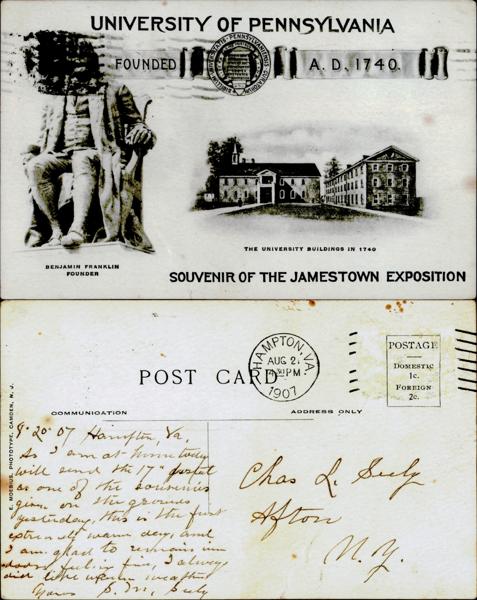 UNIVERSITY OF PENNSYLVANIA
FOUNDED A.D. 1740.
THE UNIVERSITY BUILDINGS IN 1740
BENJAMIN FRANKLIN
FOUNDER
SOUVENIR OF THE JAMESTOWN EXPOSITION
HAMPTON, VA.
AUG 2
4 30 PM
1907
POST CARD
POSTAGE
DOMESTIC
1c.
FOREIGN
2c.
COMMUNICATION
ADDRESS ONLY
E. MOEBIUS, PHOTOTYPE, CAMDEN, N. J.
8-20-07 Hampton Va.
As I am at home today
will send the 17th postal
as one of the souvenirs
given on the grounds
yesterday, this is the first
extremely warm day, and
I am glad to remain in
doors, feeling fine, I always
did like warm weather
Yours S. M. Seely
Chas L. Seely
Afton
N.Y.